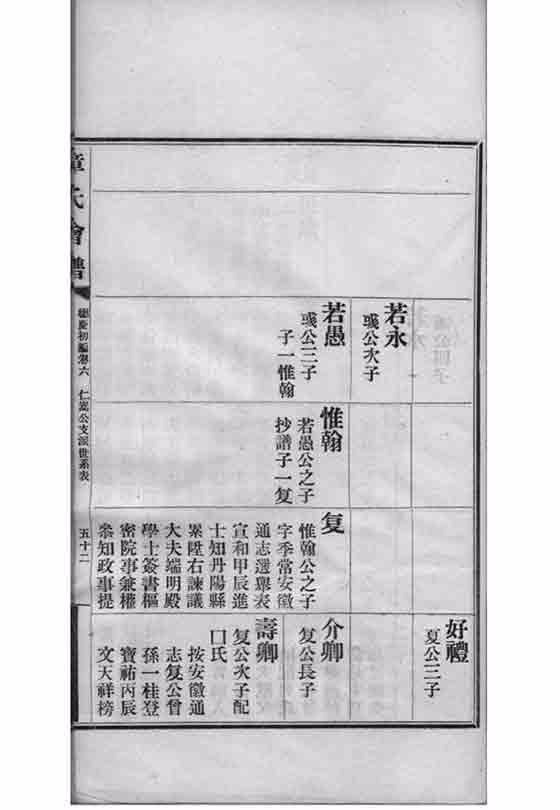 若永
彧公次子
若愚
彧公三子
子一惟翰
惟翰
若愚公之子
抄譜子一复
复
惟翰公之子
字季常安徽
通志選舉表
宣和甲辰進
士知丹陽縣
累陞右諫議
大夫端明殿
學士簽書樞
密院事兼權
叅知政事提
好禮
夏公三子
介卿
复公長子
壽卿
复公次子配
囗氏
按安徽通
志复公曾
孫一桂登
寶祐丙辰
文天祥榜
章氏會譜
德慶初編卷六
仁嵩公支派世系表
五十二